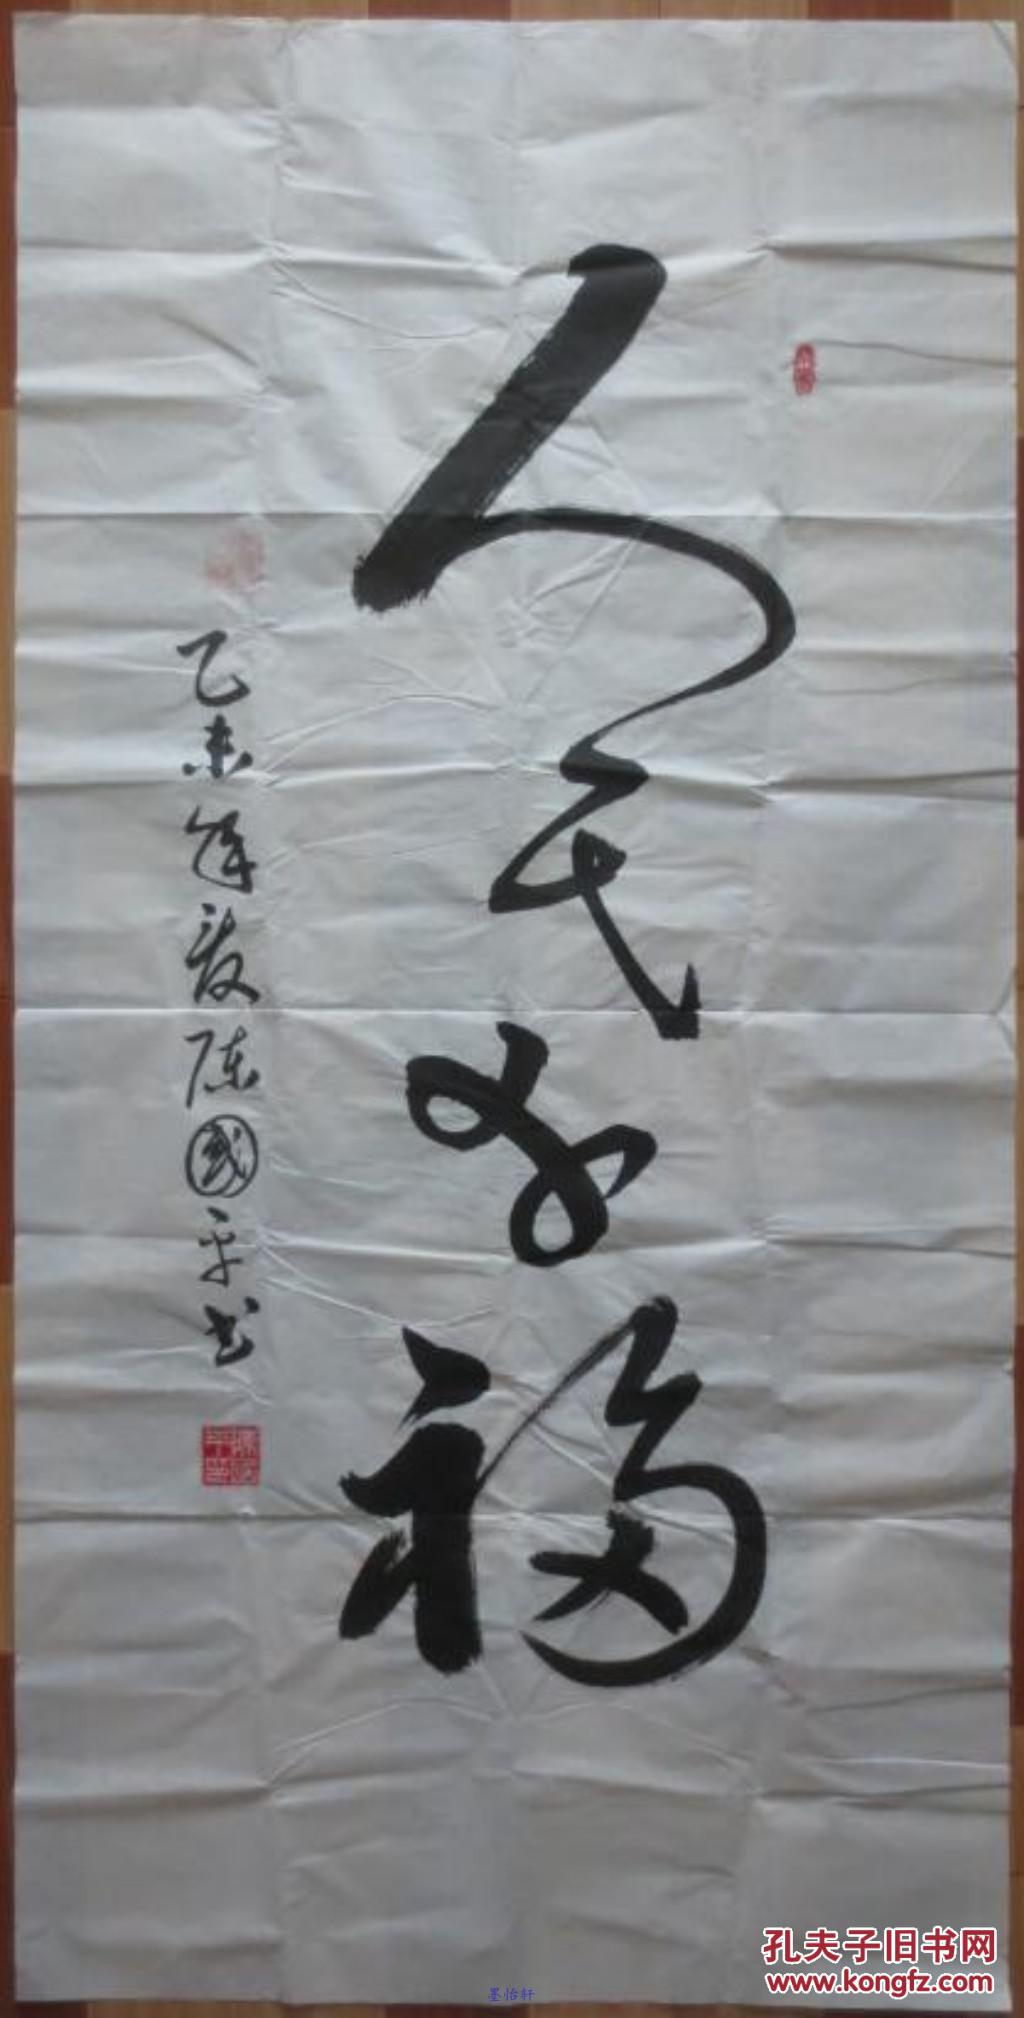 人民福
乙未年夏陈國平书
孔夫子旧书网
www.kongfz.com
墨怡轩